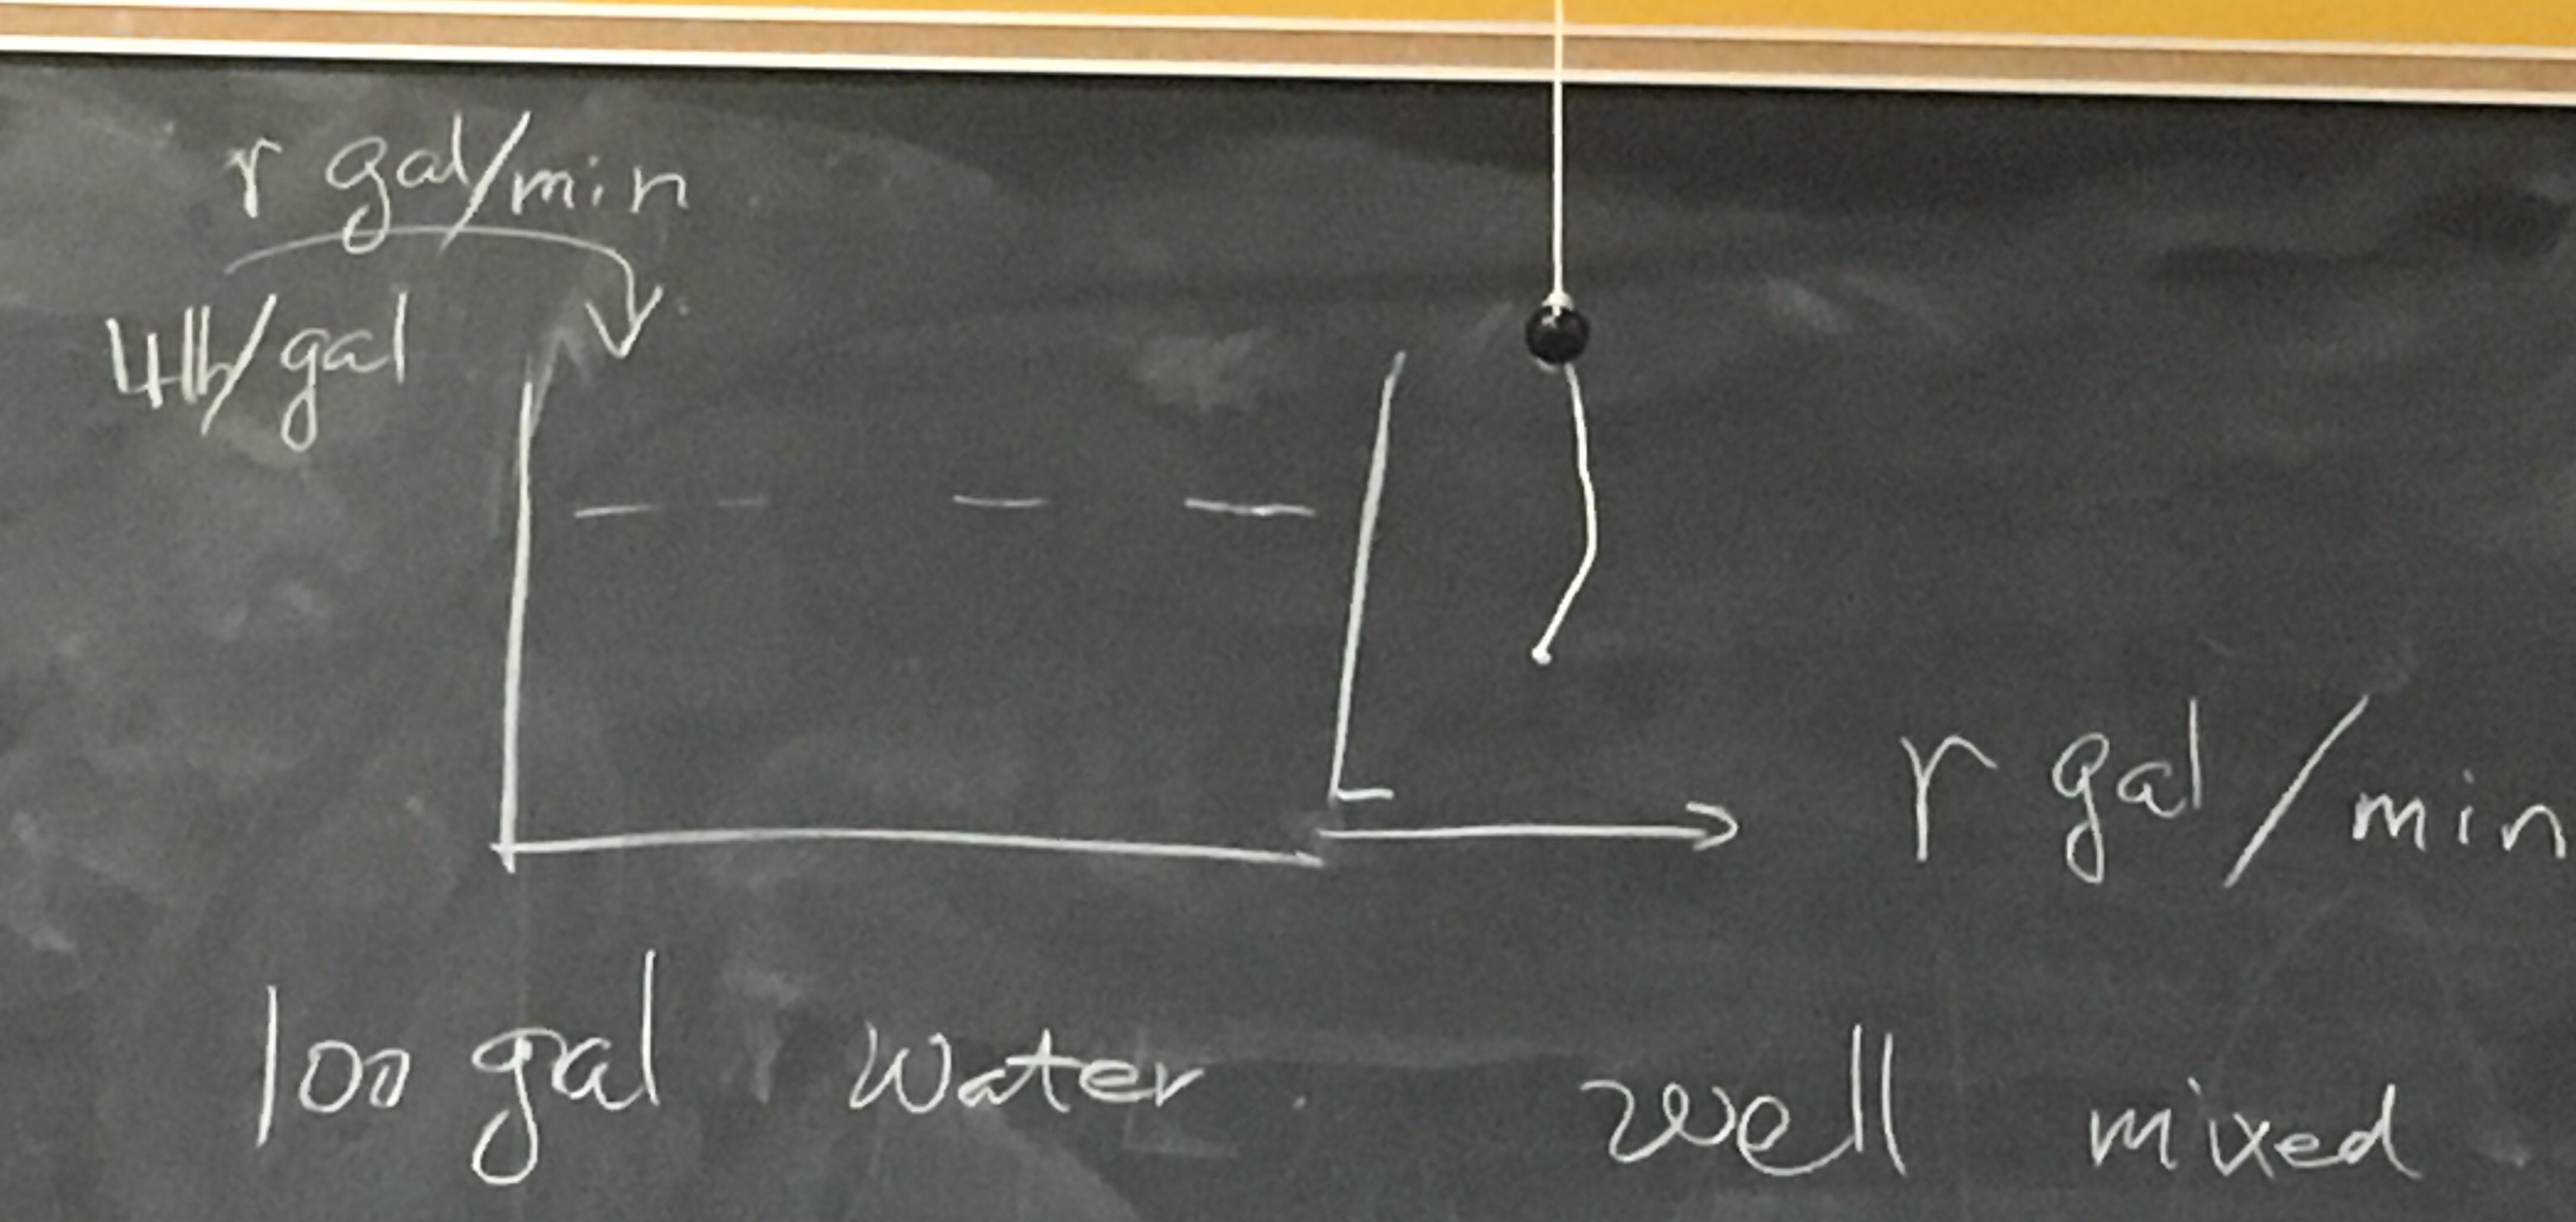 r gal/min
4lb/gal
r gal/min
100 gal water. well mixed